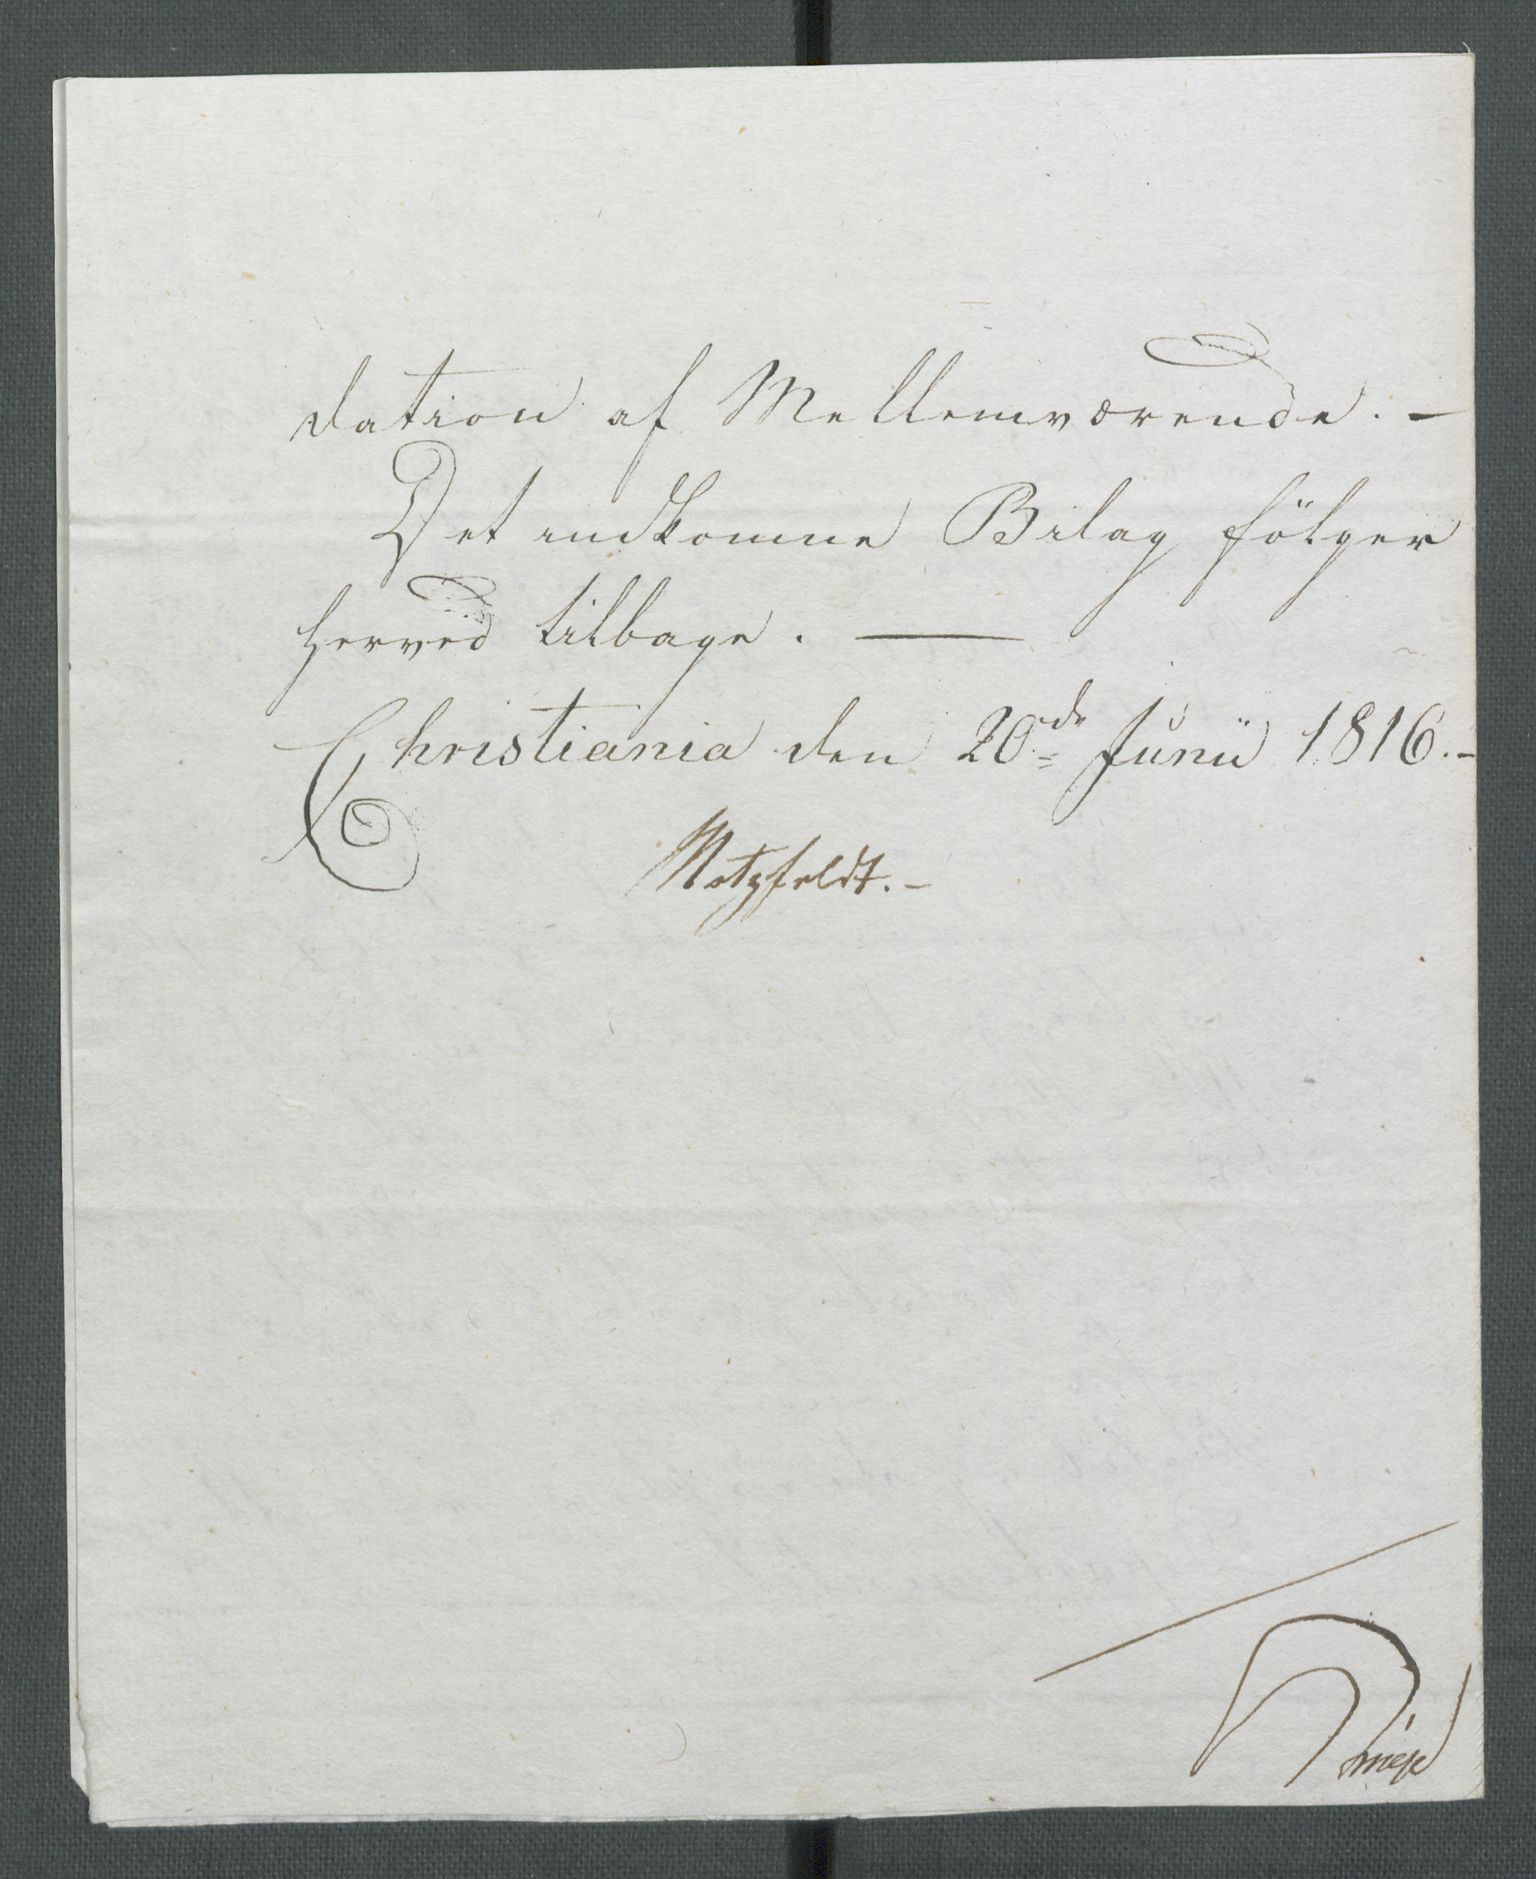 dation af Mellemværende. —
Det indkomne Bilag fölger
herved tilbage. —
Christiania den 20de Junii 1816. -
Motzfeldt. -